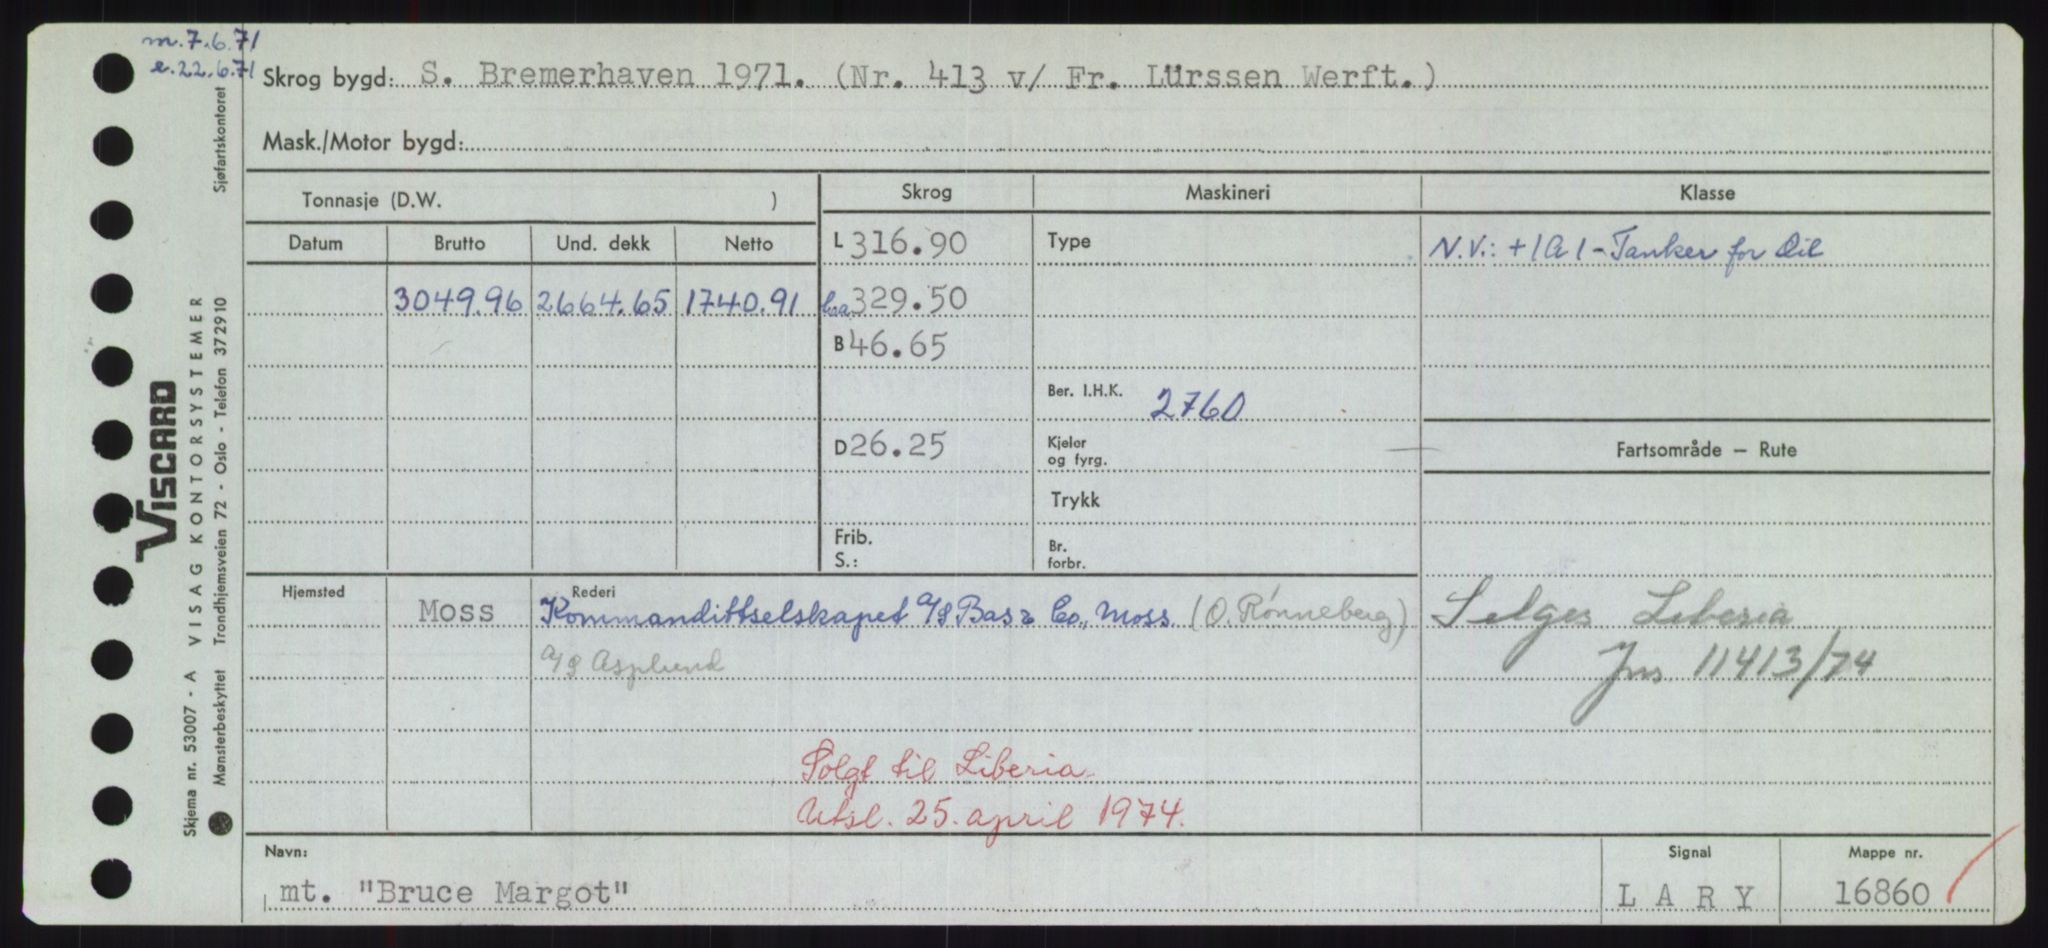 m. 7.6.71
e. 22.6.71
Skrog bygd: S. Bremerhaven 1971. (Nr. 413 v/ Fr. Lürssen Werft.)
Mask./Motor bygd:
Tonnasje (D.W. )
Skrog
Maskineri
Klasse
Datum
Brutto
Und. dekk
Netto
L 316.90
Type
N.V.: +1A1-Tanker for Oil
3049.96
2664.65
1740.91
329.50
B 46.65
Ber. I.H.K. 2760
D 26.25
Kjeler
og fyrg.
Fartsområde — Rute
Trykk
Frib.
S.:
Br.
forbr.
Hjemsted
Moss
Rederi
Kommandittselskapet A/S Bas & Co., Moss. (O. Rønneberg)
A/S Asplund
Selges Liberia
Jns 11413/74
Solgt til Liberia
Utsl. 25. april 1974.
Navn:
mt. "Bruce Margot"
Signal
LARY
Mappe nr.
16860
VISCARD
Skjema nr. 53007 - A VISAG KONTORSYSTEMER
Mønsterbeskyttet Trondhjemsveien 72 - Oslo - Telefon 372910 Sjøfartskontoret